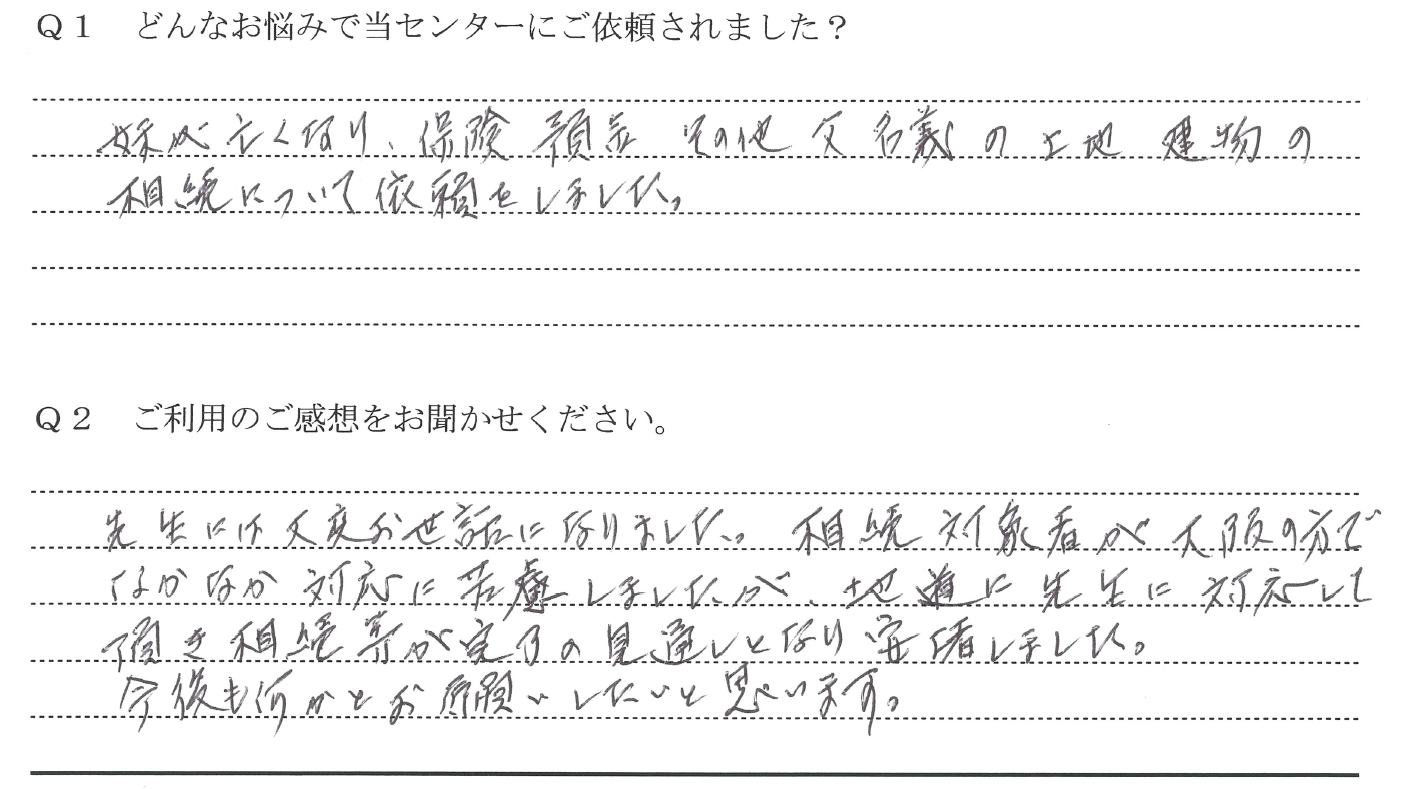 Q1 どんなお悩みで当センターにご依頼されました？
妹が亡くなり、保険 預金 その他 父名義の土地 建物の
相続について依頼をしました。
Q2 ご利用のご感想をお聞かせください。
先生には大変お世話になりました。相続対象者が大阪の方で
なかなか対応に苦慮しましたが、地道に先生に対応して
頂き相続等が完了の見通しとなり安堵しました。
今後も何かとお願いしたいと思います。